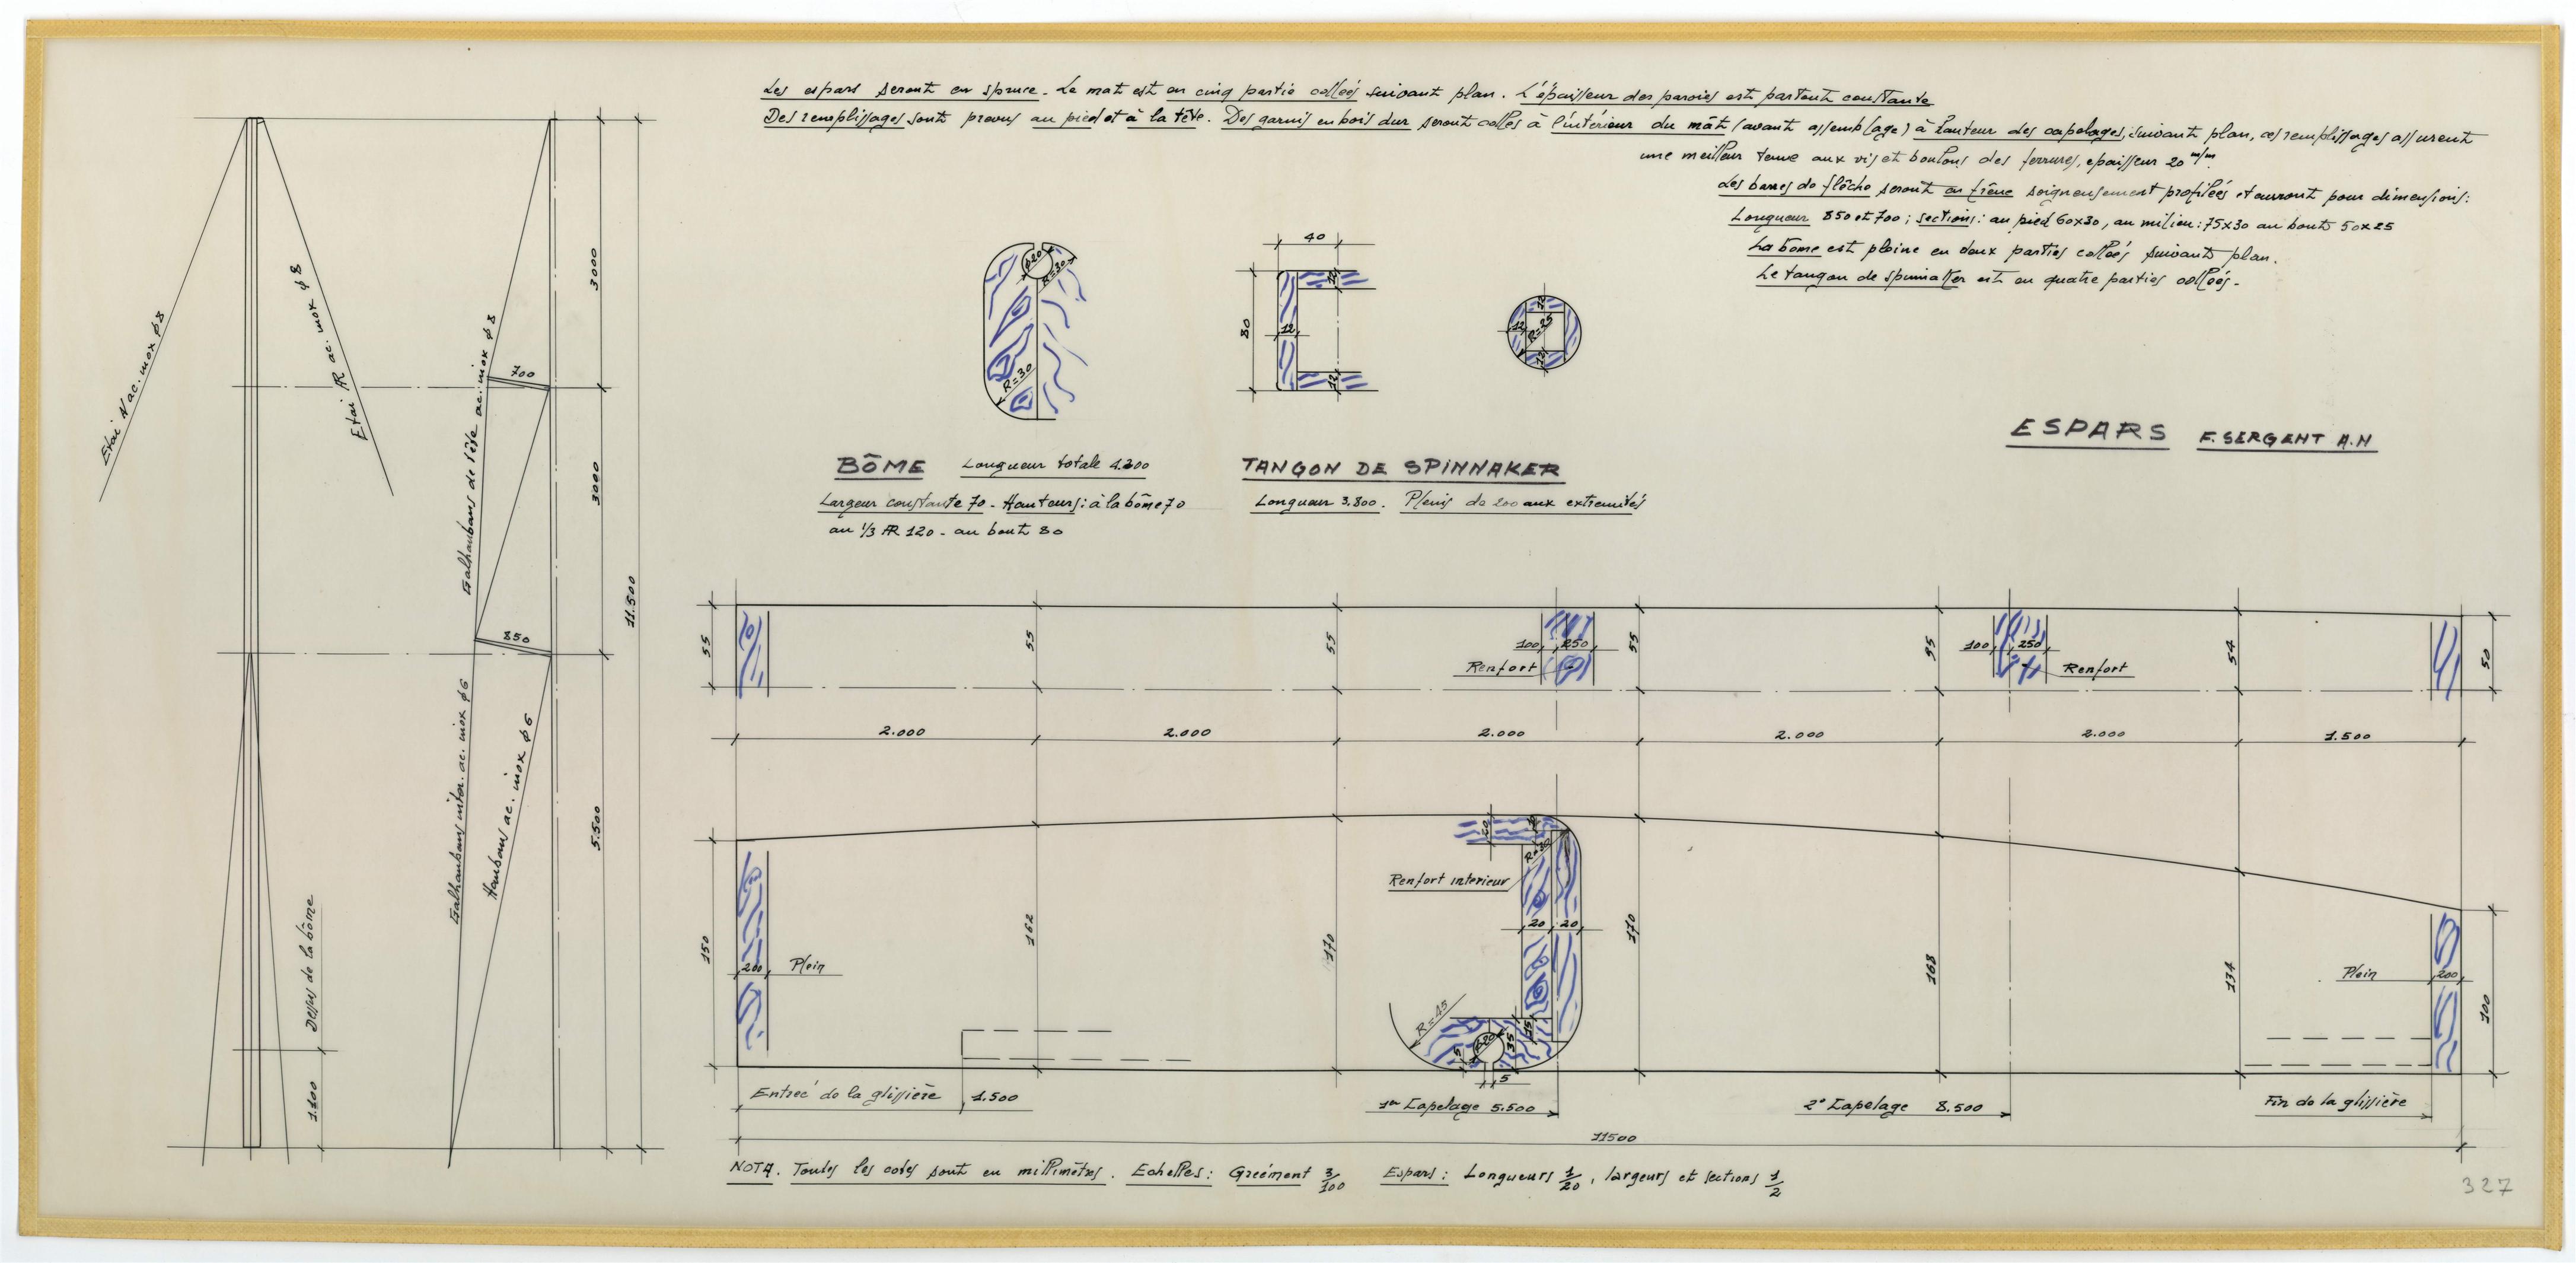 Les espars seront en spruce. Le mat est en cinq partie collées suivant plan. L'épaisseur des paroies est partout constante
Des remplissages sont prevus au pied et à la tête. Des garnis en bois dur seront collés à l'intérieur du mât (avant assemblage) à hauteur des capelages, suivant plan, ces remplissages assurent
une meilleur tenue aux vis et boulons des ferrures, epaisseur 20 m/m.
Les barres de flêche seront en frêne soigneusement profilées et auront pour dimensions:
Longueur 850 et 700; sections: au pied 60x30, au milieu: 75x30 au bout 50x25
La bome est pleine en deux parties collées suivant plan.
Le tangon de spinnaker est en quatre parties collées.
ESPARS F. SERGENT A.N
BÔME Longueur totale 4.200
Largeur constante 70 - Hauteurs: à la bôme 70
au 1/3 AR 120 - au bout 80
TANGON DE SPINNAKER
Longueur 3.800. Pleins de 200 aux extremités
Ø20
R=30
R=30
40
80
12
12
12
12
12
12
R=25
Etai AV ac. inox ø8
Etai AR ac. inox ø8
Galhaubans de tête ac. inox ø8
700
850
Galhaubans infer. ac. inox ø6
Haubans ac. inox ø6
Dessus de la bôme
1.100
3000
3000
5.500
11.500
55
55
55
100
250
Renfort
55
55
100
250
Renfort
54
50
2.000
2.000
2.000
2.000
2.000
1.500
150
200
Plein
162
170
Renfort interieur
20
R=30
20
20
R=45
Ø20
35
15
5
5
170
168
134
Plein
200
100
Entreé de la glissière 1.500
1er Capelage 5.500
2e Capelage 8.500
Fin de la glissière
11500
NOTA. Toutes les cotes sont en millimètres. Echelles: Greément 3/100 Espars: Longueurs 1/20, largeurs et sections 1/2
327